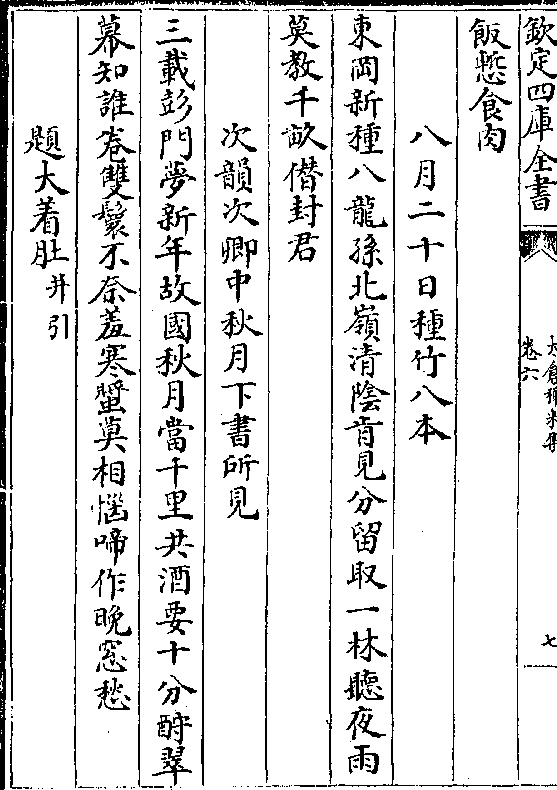 欽定四庫全書
太倉稊米集
卷六
七
飯慙食肉
八月二十日種竹八本
東岡新種八龍孫北嶺清陰肯見分留取一林聽夜雨
莫教千畝僭封君
次韻次卿中秋月下書所見
三載彭門夢新年故國秋月當千里共酒要十分酧翠
幕知誰卷雙鬟不奈羞寒螿莫相惱啼作晩窓愁
題大着肚并引